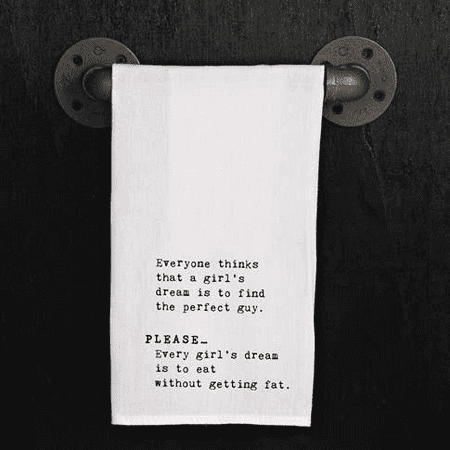 Everyone thinks
that a girl's
dream is to find
the perfect guy.
PLEASE…
Every girl's dream
is to eat
without getting fat.